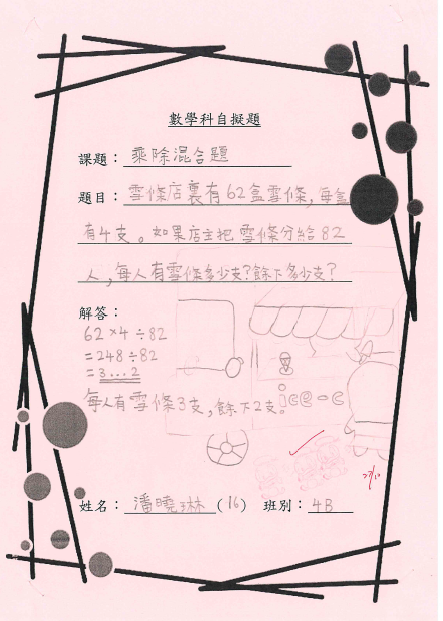 數學科自擬題
課題：乘除混合題
題目：雪條店裏有62盒雪條，每盒
有4支。如果店主把雪條分給82
人，每人有雪條多少支？餘下多少支？
解答：
62×4÷82
=248÷82
=3...2
每人有雪條3支，餘下2支。
ice-c
姓名：潘曉琳(16) 班別：4B